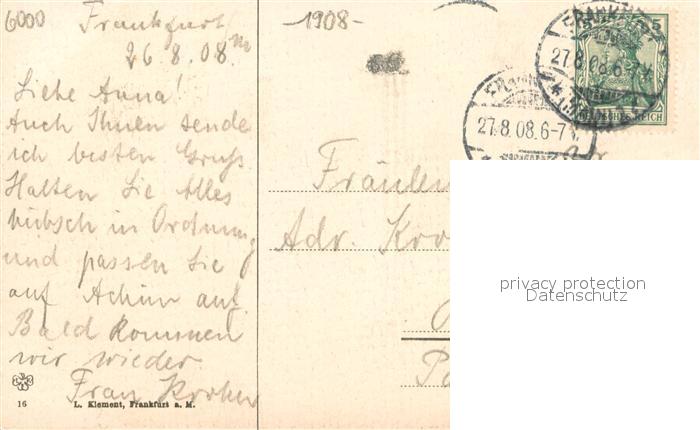 6000
Frankfurt
1908-
26.8.08.
Liebe Anna!
Auch Ihnen sende
ich besten Gruß
Halten Sie Alles
hübsch in Ordnung
und passen Sie
auf Achim auf.
Bald kommen
wir wieder
Frau
16
L. Klement, Frankfurt a. M.
FRANKFURT
27.8.08.6-
5
DEUTSCHES REICH
27.8.08.6-7V.
Fräulein
Adr.
privacy protection
Datenschutz